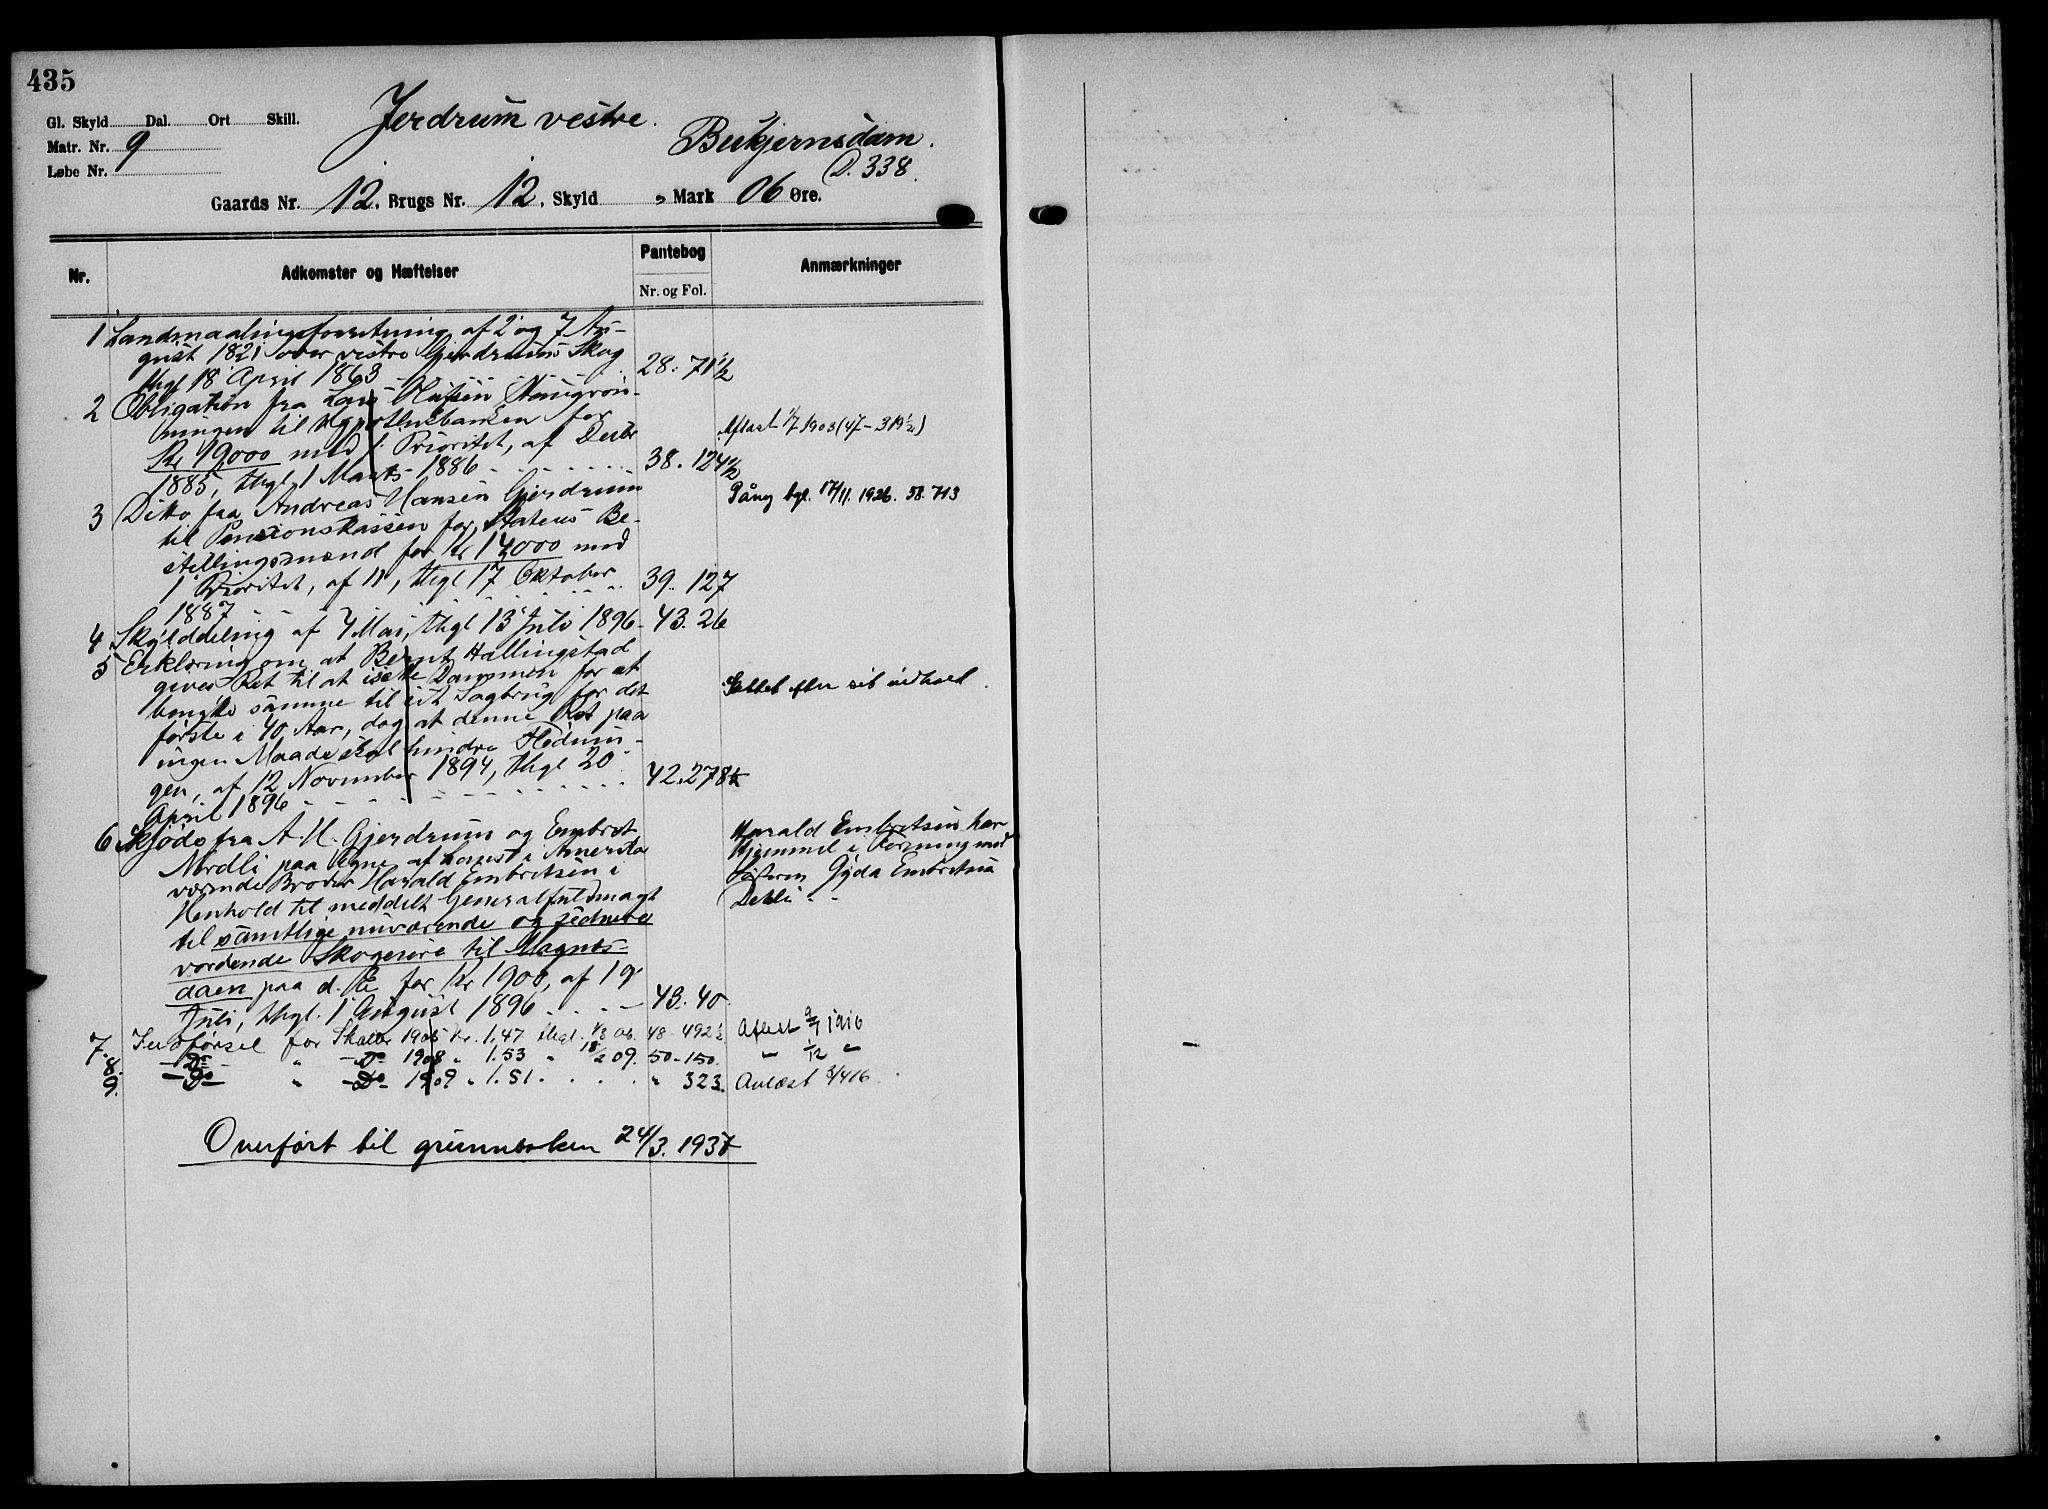 435
Gl. Skyld Dal. Ort Skill.
Jerdrum vestre.
Matr. Nr. 9
Løbe Nr.
D. 338.
Gaards Nr. 12, Brugs Nr. 12, Skyld " Mark 06 Øre.
Nr. Adkomster og Hæftelser Pantebog Nr. og Fol. Anmærkninger
1 Landmaalingsforretning af 2 og 7 Au-
gust 1821 over vestre Gjerdrums Skog
thgl 18 April 1863 28. 71 1/2
2 Obligation fra Lars Olafsen
til Hypothekbanken for
Kr 19000 med 1 Prioritet, af Decbr
Aflæst 1/7 1903 (47-319 1/2)
1885, thgl 1 Marts 1886 38. 124 1/2
3 Ditto fra Andreas Hansen Gjerdrum
Påny tgl. 17/11. 1926. 58. 713
til Pensionskassen for Statens Be-
stillingsmænd for Kr 14000 med
1 Prioritet, af 11, thgl 17 Oktober
1887 39. 127
4 Skylddeling af 7 Mai, thgl 13 Juli 1896 43. 26
5 Erklæring om at Bernt Hallingstad
gives Ret til at isætte Dammen for at
Slettet efter sit indhold.
benytte samme til sit Sagbrug for det
første i 40 Aar, dog at denne Ret paa
ingen Maade skal hindre Flødnin-
gen, af 12 November 1894, thgl 20
April 1896 42. 278
6 Skjøde fra A. H. Gjerdrum og Embret
Nordli paa Egne af hans i Amerika
værende Broder Harald Embretsen i
Henhold til meddelt Generalfuldmagt
til samtlige nuværende og sednere
vordende Skogeiere til Magnæs-
daen paa d. E. for Kr 1900, af 19
Juli, thgl. 1 August 1896 43. 40
Harald Embretsen har
Hjemmel i Forening med
Søsteren Gyda Embretsen
Dehli
7. Indførsel for Skatter 1905 Kr. 1.47 thgl. 1/3 06. 48-492 1/2 Aflæst 9/1 1916
8. - Do - " - Do - 1908 " 1.53 " 18/2 09. 50-150. " 1/12 "
9. - Do - " - Do - 1909 " 1.51 " 323. Avlæst 3/4 16
Overført til grunnboken 24/3. 1937